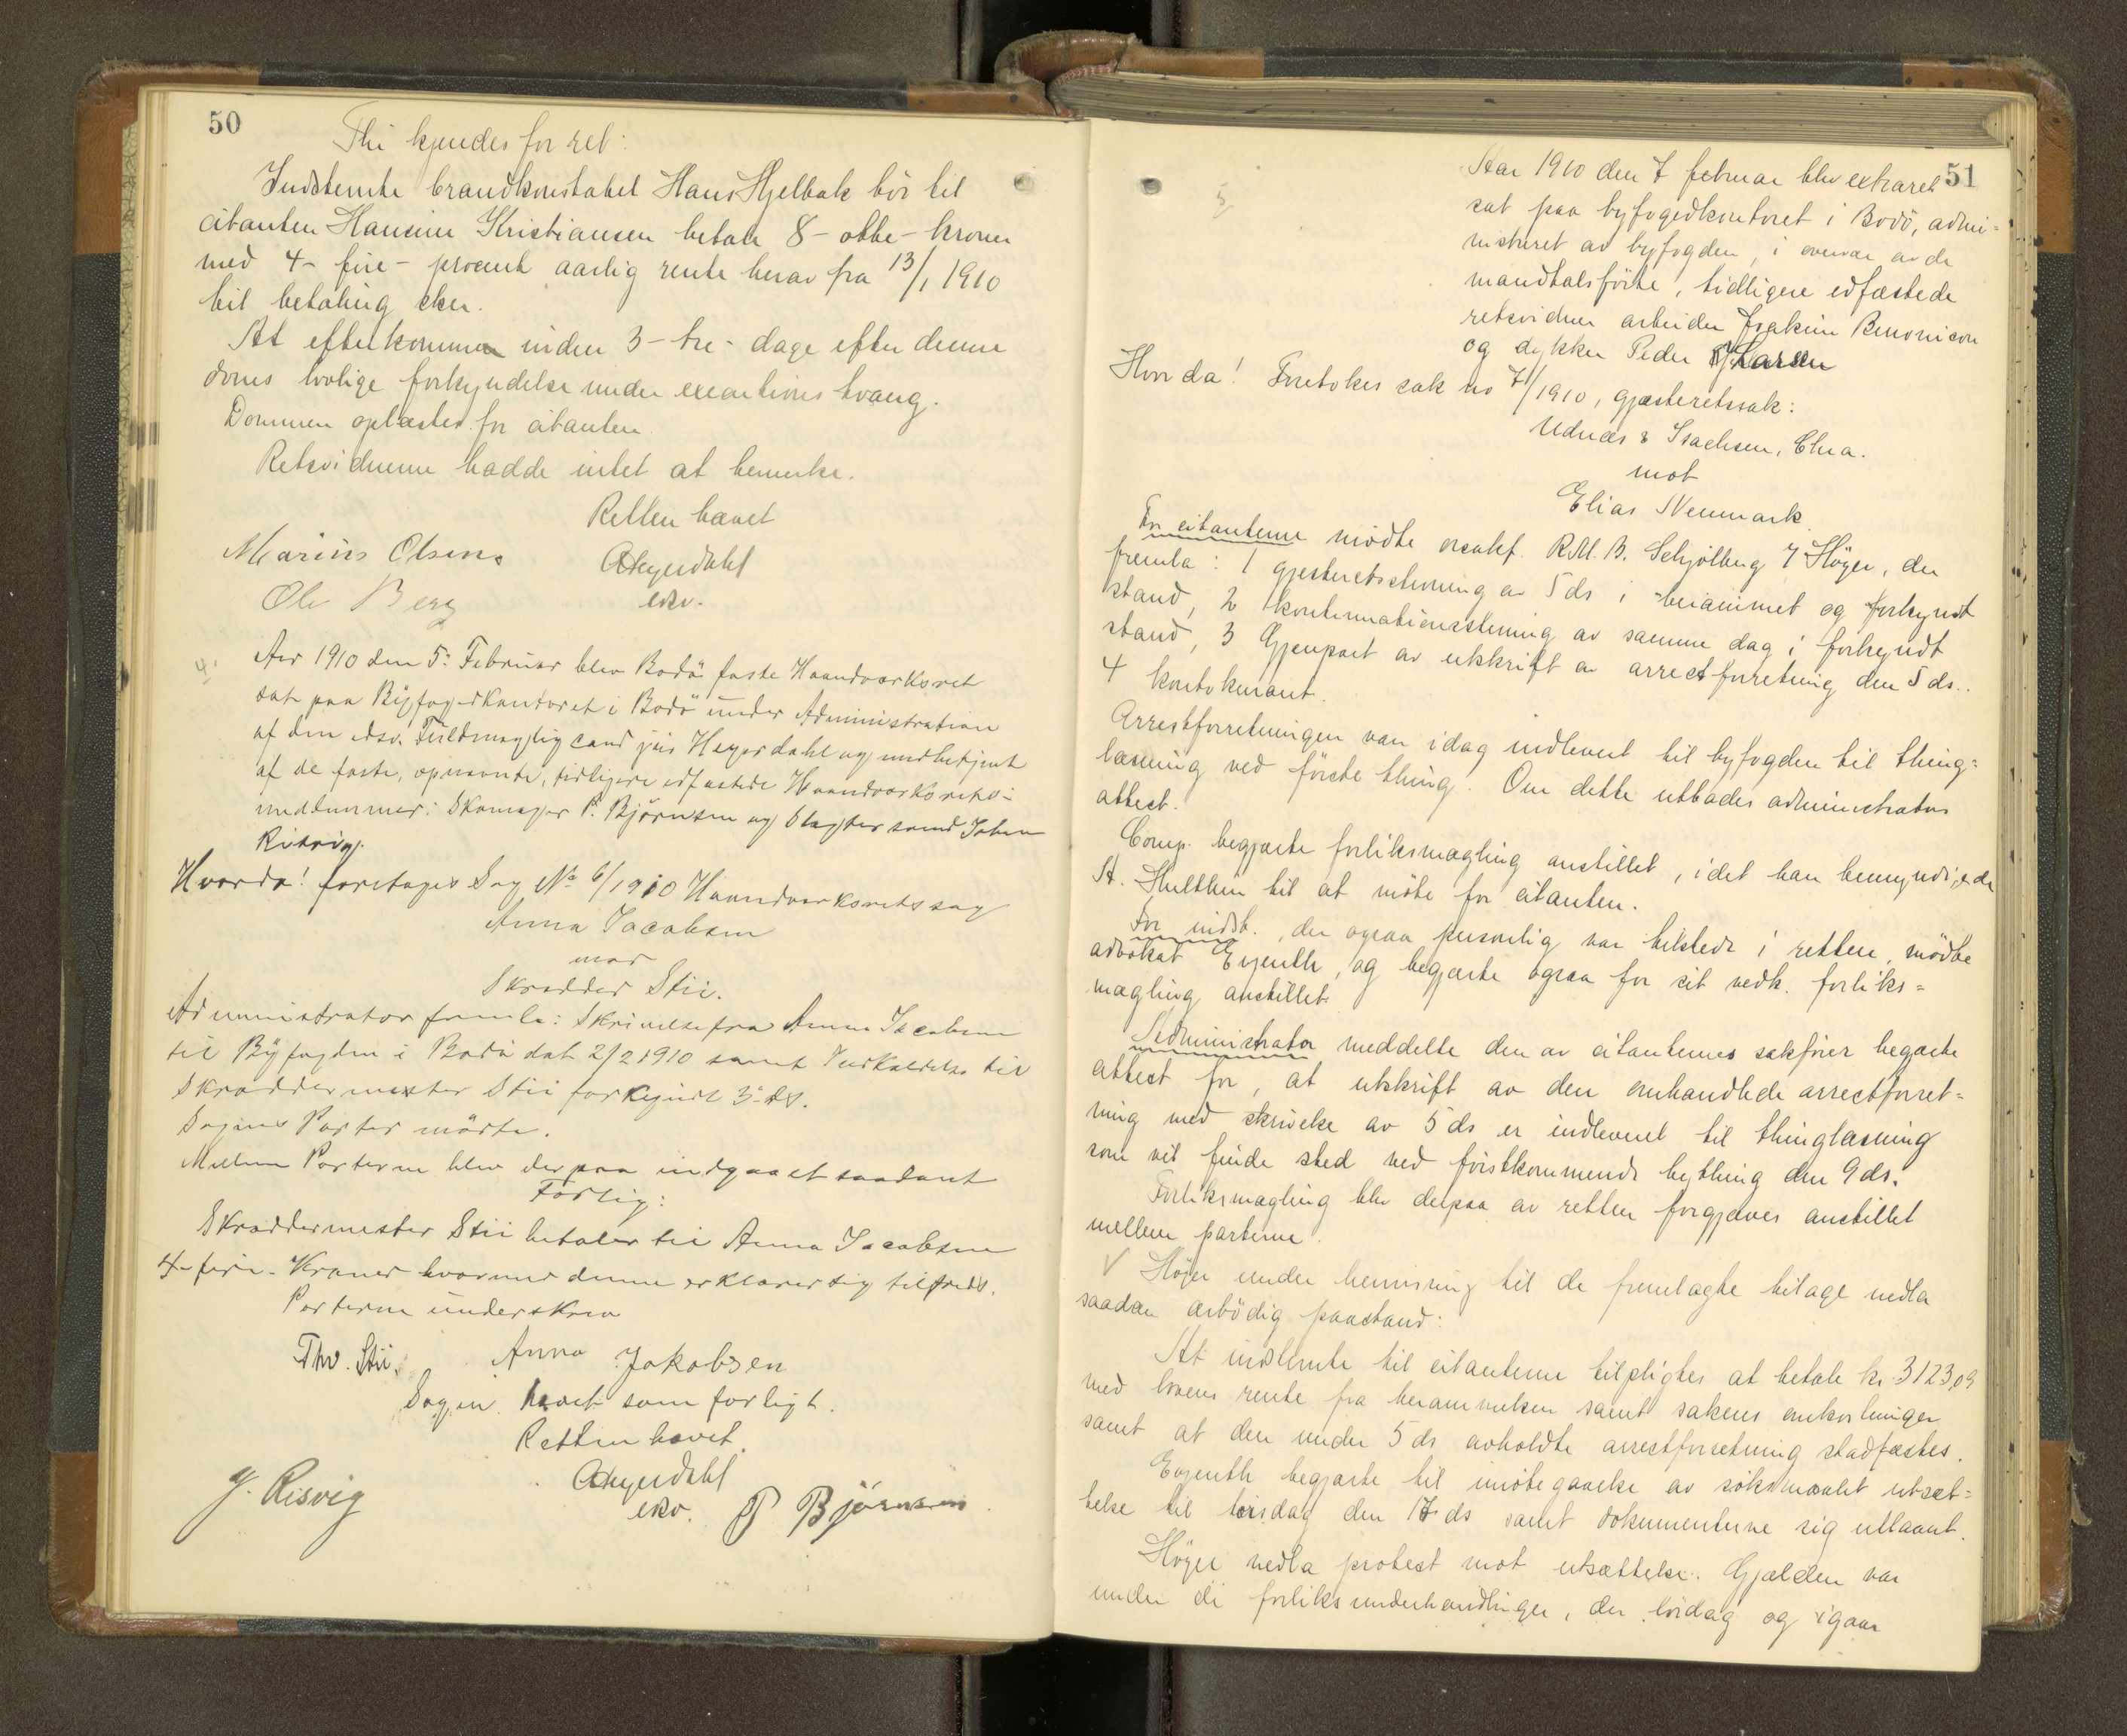 50
Thi kjendes for ret:
Indstevnte brandkonstabel Hans Hjelbak bör til
citanten Hansine Kristiansen betale 8 - otte - kroner
med 4 - fire - procent aarlig rente herav fra 13/1 1910
til betaling sker.
At efterkommes inden 3 - tre - dage efter denne
doms lovlige forkyndelse under executions tvang.
Dommen oplæstes for citanten.
Retsvidnerne hadde intet at bemerke.
Retten hævet
Marius Olsen.
AHeyerdahl
Ole Berg
edsv.
4,
Aar 1910 den 5: Februar blev Bodö faste Haandværksret
sat paa Byfogedkontoret i Bodö under Administration
af den edsv. Fuldmægtig cand jur Heyerdahl og medbetjent
af de faste, opnævnte, tidligere edfæstede Haandværksrets-
meddommer: Skomager P. Björnsen og Slagtersvend Johan
Risvig.
Hvorda! foretages Sag No 6/1910 Haandværksretssag
Anna Jacobsen
mod
Skrædder Stii.
Administrator fremla: Skrivelse fra Anna Jacobsen
til Byfogden i Bodö dat 2/2 1910 samt Indkaldelse til
Skræddermester Stii forkyndt 3' ds.
Sagens Parter mödte.
Mellem Parterne blev derpaa indgaaet saadant
Forlig:
Skræddermester Stii betaler til Anna Jacobsen
4 - fire - Kroner hvormed denne erklærer sig tilfreds.
Parterne underskrev
Thv. Stii. Anna Jakobsen
Sagen hævet som forligt.
Retten hævet.
AHeyerdahl
J. Risvig
edsv. P Björnsen
51
5,
Aar 1910 den 7 februar blev extraret
sat paa byfogedkontoret i Bodö, admi-
nistreret av byfogden, i overvær av de
mandtalsförte, tidligere edfæstede
retsvidner arbeider Joakim Benonisen
og dykker Peder Larsen
Hvorda! Foretokes sak no 7/1910, gjæsteretssak:
Udnæs & Isachsen, Chra.
mot
Elias Nenmark.
For citanterne mödte orsakf. R.M.B. Schjölberg f Höyer, der
fremla: 1 gjesteretsstevning av 5 ds i berammet og forkyndt
stand, 2 kontinuationsstevning av samme dag i forkyndt
stand, 3 Gjenpart av utskrift av arrestforretning den 5 ds..
4 kontokurant.
Arrestforretningen var idag indlevert til byfogden til thing-
læsning ved förste thing. Om dette utbades administrators
attest.
Comp. begjærte forliksmægling anstillet, idet han bemyndigede
H. Hulthin til at möte for citanten.
For indst., der ogsaa personlig var tilstede i retten, mödte
advokat Evjenth, og begjærte ogsaa for sit vedk. forliks-
mægling anstillet.
Administrator meddelte den av citanternes sakförer begjærte
attest for, at utskrift av den omhandlede arrestforret-
ning med skrivelse av 5 ds er indleveret til thinglæsning
som vil finde sted ved förstkommende bything den 9 ds.
Forliksmægling blev derpaa av retten forgjæves anstillet
mellem parterne.
Höyer under henvisning til de fremlagte bilage nedla
saadan ærbödig paastand:
At indstevnte til citanterne tilpligtes at betale kr. 3123,09
med lovens rente fra berammelsen samt sakens omkostninger
samt at den under 5 ds avholdte arrestforretning stadfæstes.
Evjenth begjærte til imötegaaelse av söksmaalet utsæt-
telse til torsdag den 17 ds samt dokumenterne sig utlaant.
Höyer nedla protest mot utsættelse. Gjælden var
under de forliksunderhandlinger, der lördag og igaar